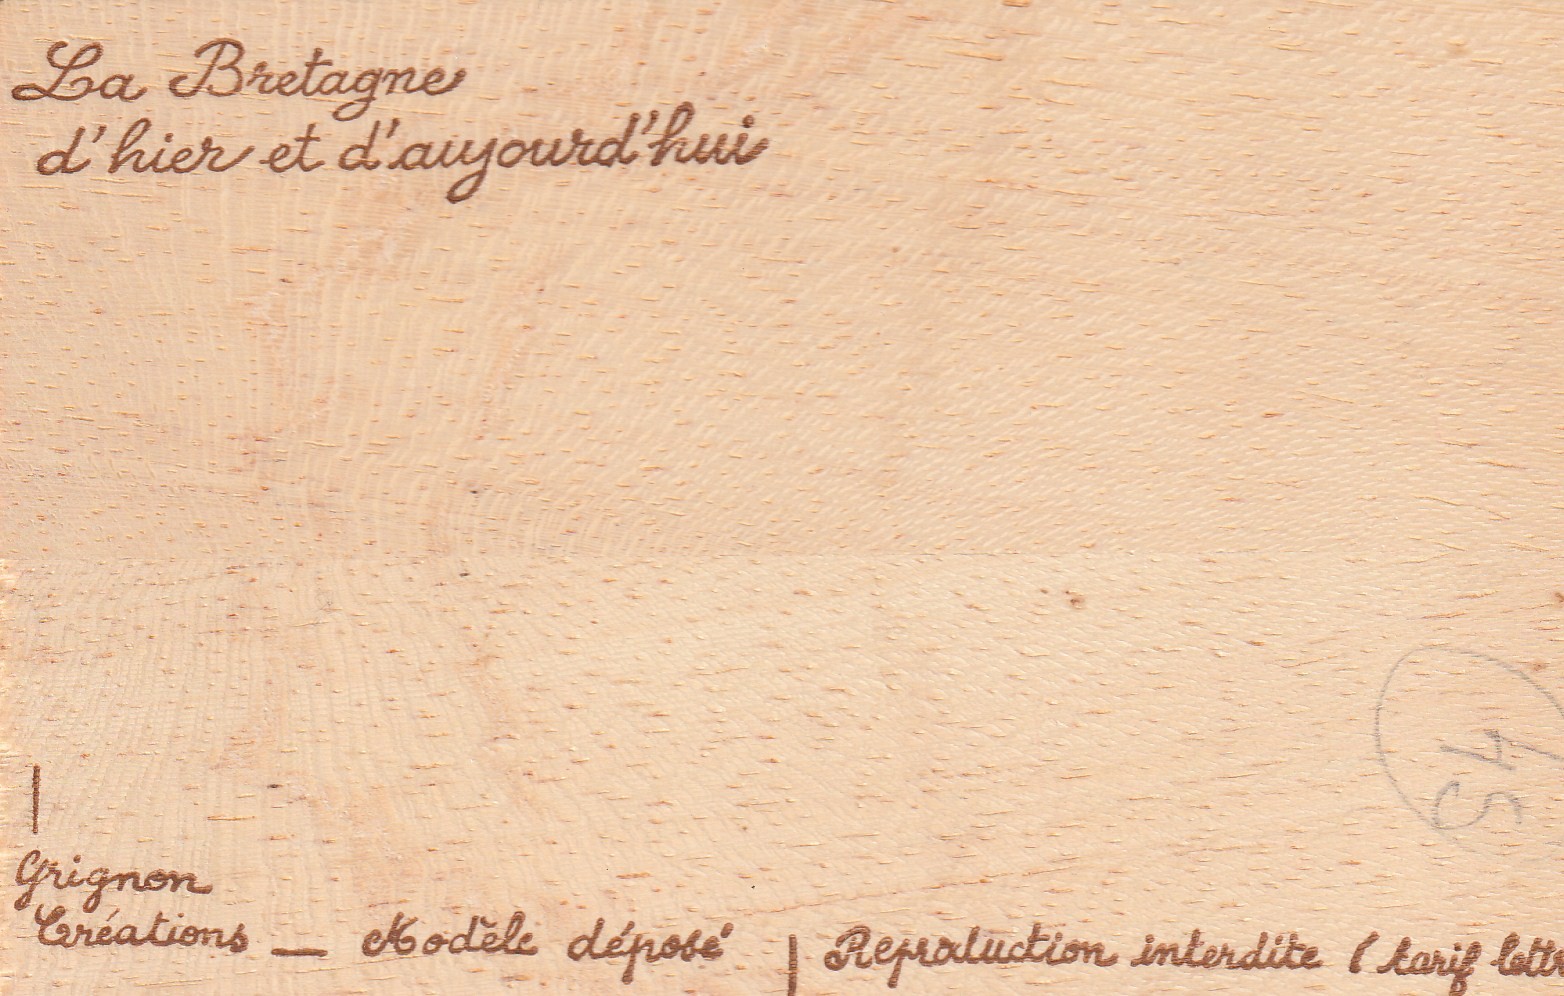 La Bretagne
d'hier et d'aujourd'hui
Grignon
Créations — Modèle déposé | Reproduction interdite ( tarif lettr
45